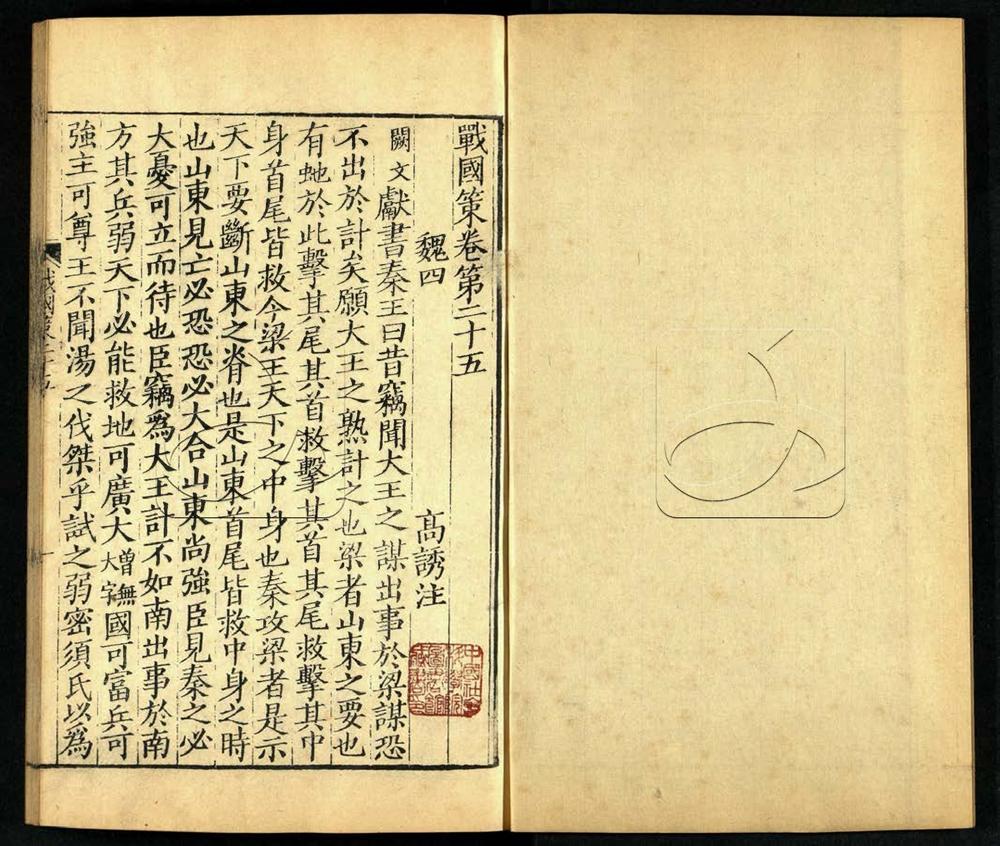 戰國策卷第二十五
魏四　高誘注
闕文獻書秦王曰昔竊聞大王之謀出事於梁謀恐
不出於計矣願大王之熟計之也梁者山東之要也
有虵於此擊其尾其首救擊其首其尾救擊其中
身首尾皆救今梁王天下之中身也秦攻梁者是示
天下要斷山東之脊也是山東首尾皆救中身之時
也山東見亡必恐恐必大合山東尚強臣見秦之必
大憂可立而待也臣竊爲大王計不如南出事於南
方其兵弱天下必能救地可廣大曾無大字國可富兵可
強主可尊王不聞湯之伐桀乎試之弱密須氏以爲
戰國策二十五